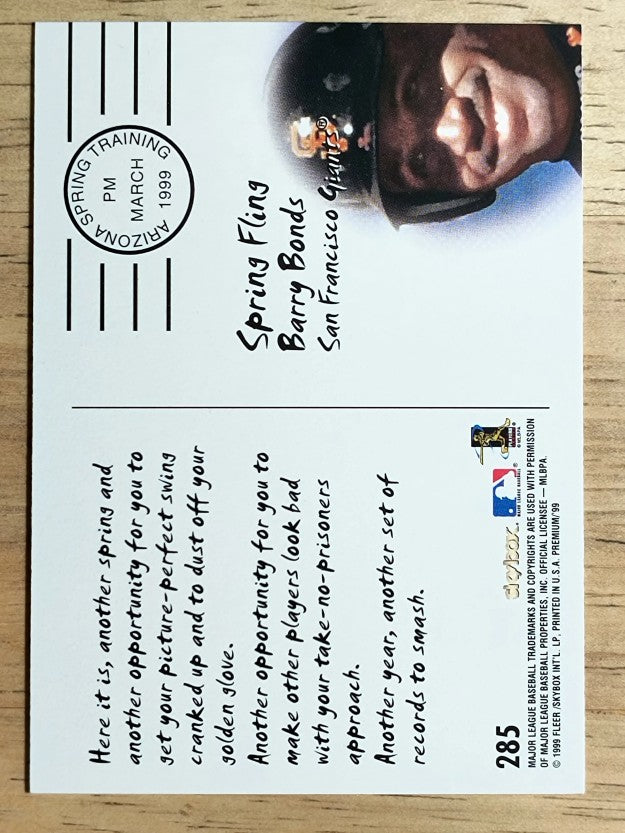 Here it is, another spring and
another opportunity for you to
get your picture-perfect swing
cranked up and to dust off your
golden glove.
Another opportunity for you to
make other players look bad
with your take-no-prisoners
approach.
Another year, another set of
records to smash.
285
skybox
MAJOR LEAGUE BASEBALL
MAJOR LEAGUE BASEBALL TRADEMARKS AND COPYRIGHTS ARE USED WITH PERMISSION
OF MAJOR LEAGUE BASEBALL PROPERTIES, INC. OFFICIAL LICENSEE — MLBPA.
© 1999 FLEER /SKYBOX INT'L. LP, PRINTED IN U.S.A. PREMIUM/'99
ARIZONA SPRING TRAINING
PM
MARCH
1999
Spring Fling
Barry Bonds
San Francisco Giants®
SF